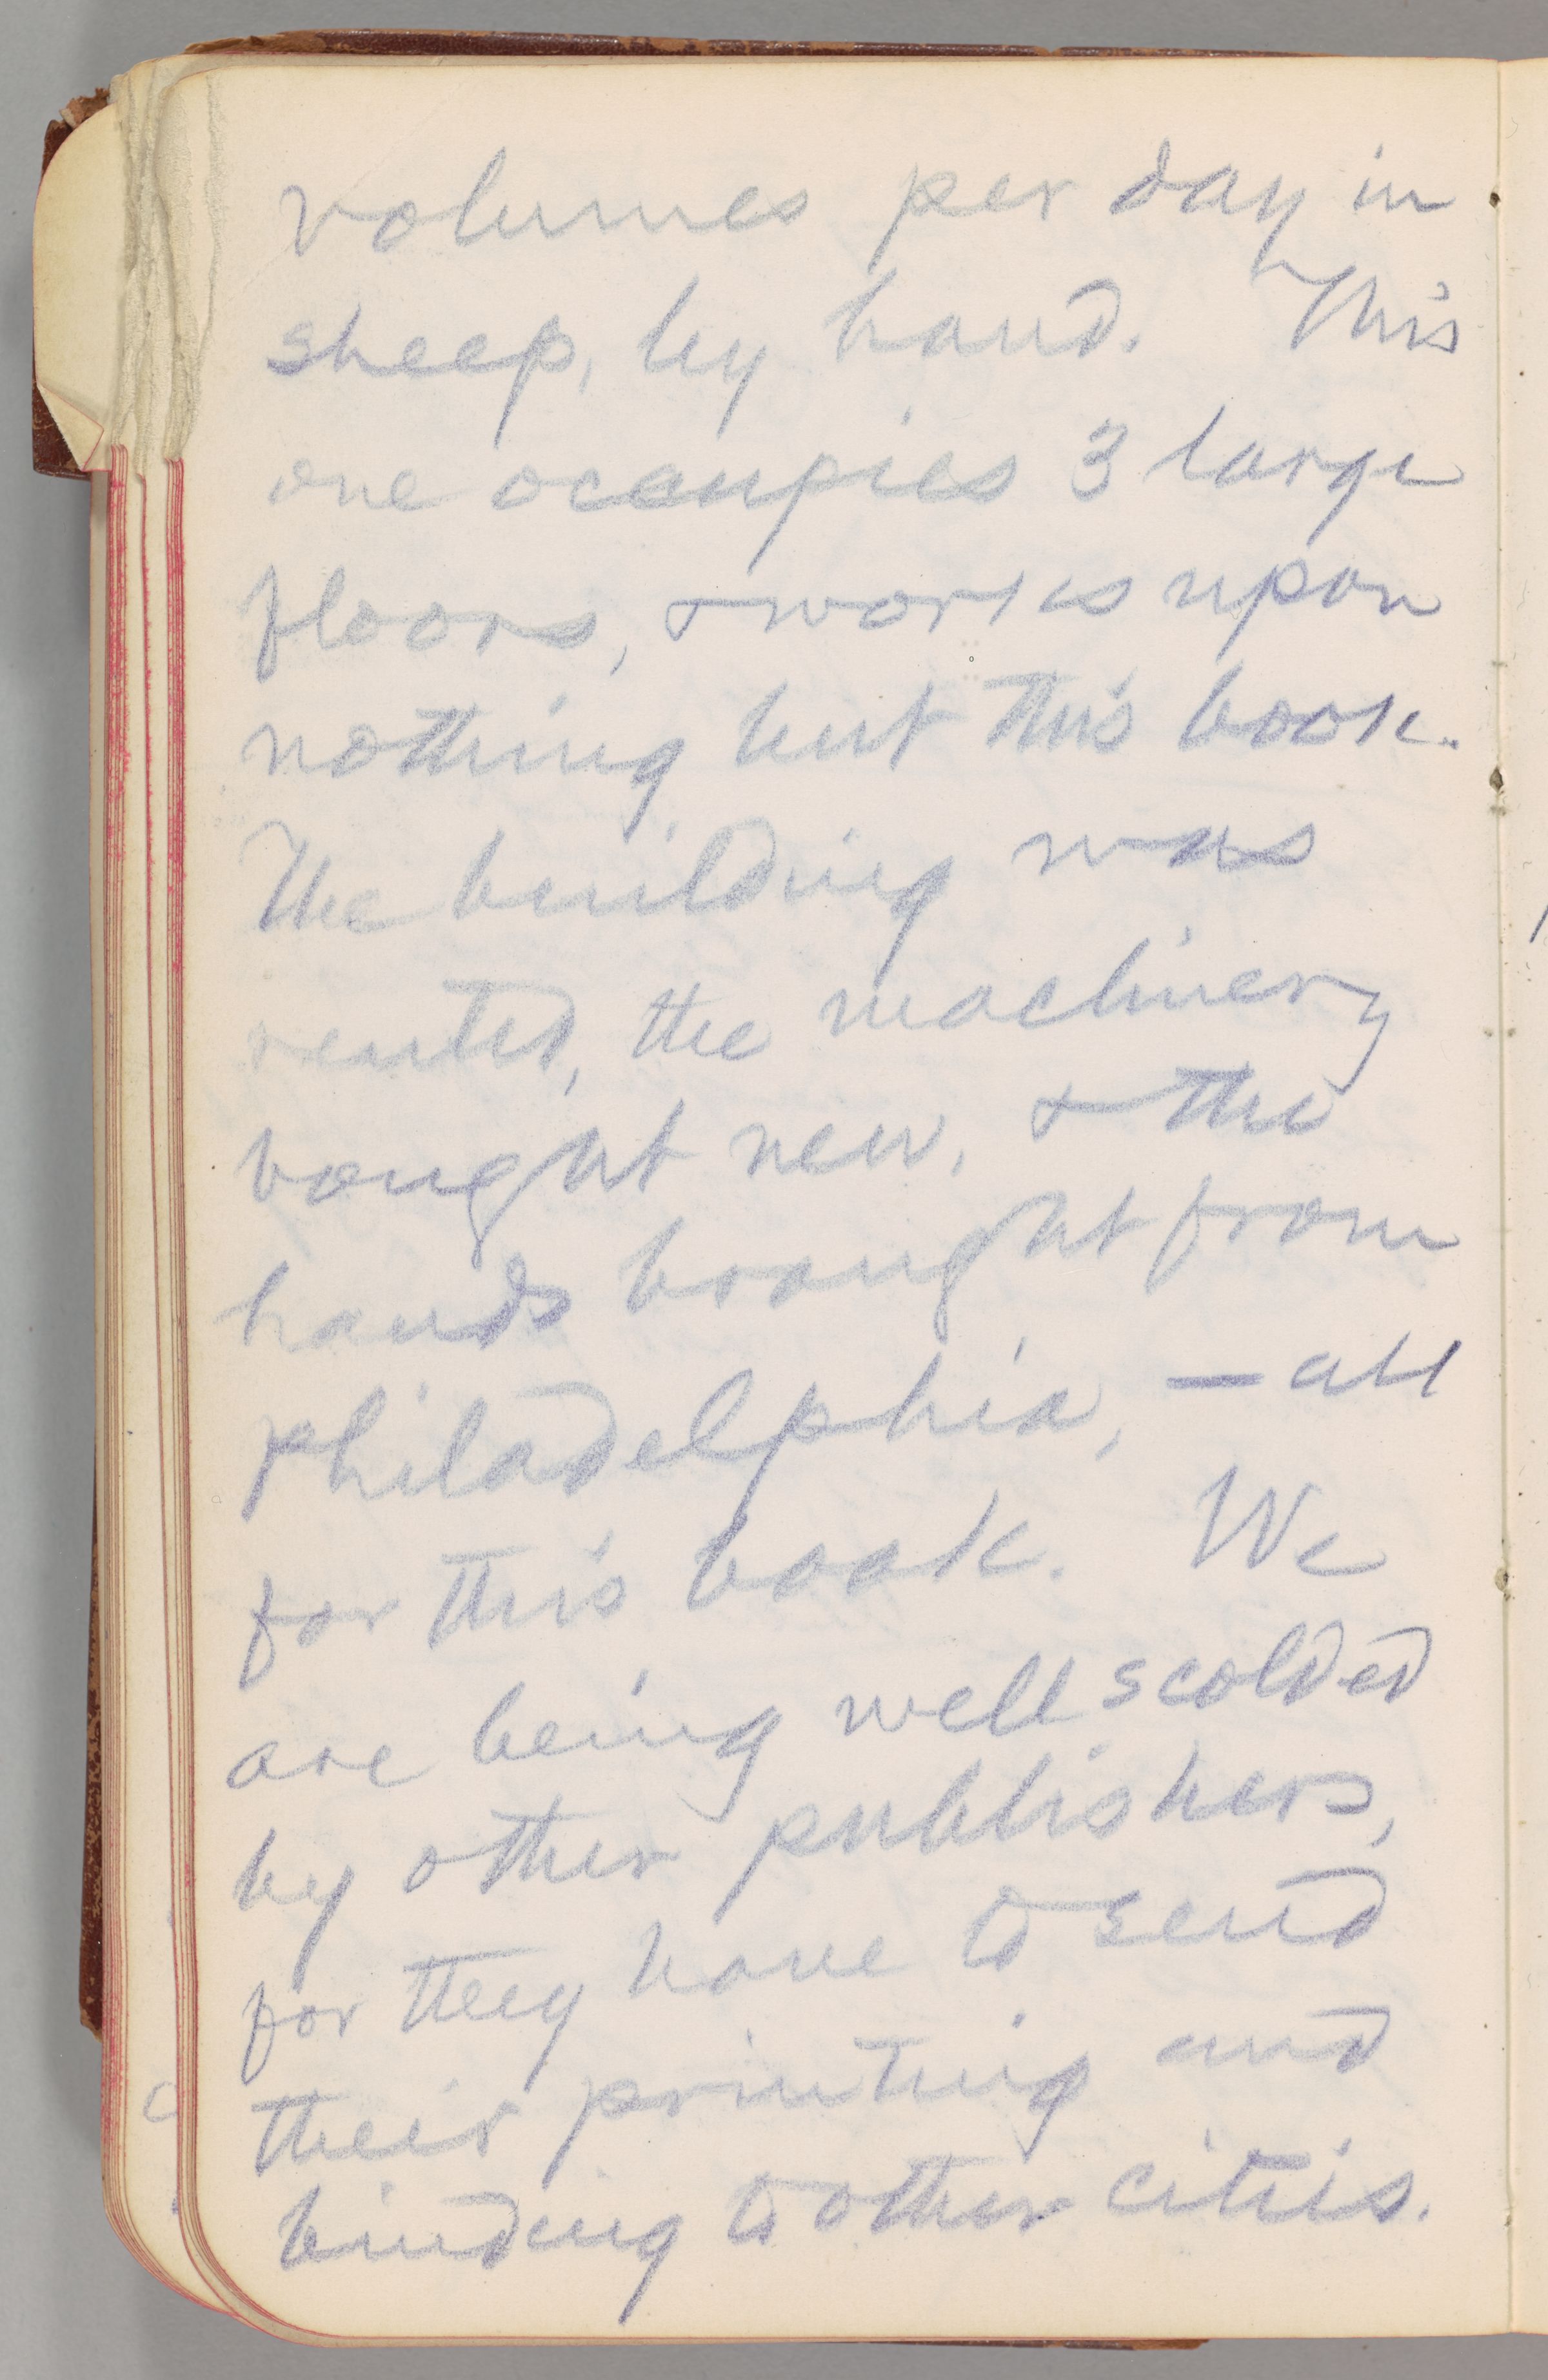 volumes per day in
sheep, by hand. This
one occupies 3 large
floors, & works upon
nothing but this book.
The building was
rented, the machinery
bought new, & the
hands brought from
Philadelphia, — all
for this book. We
are being well scolded
by other publishers,
for they have to send
their printing and
binding to other cities.